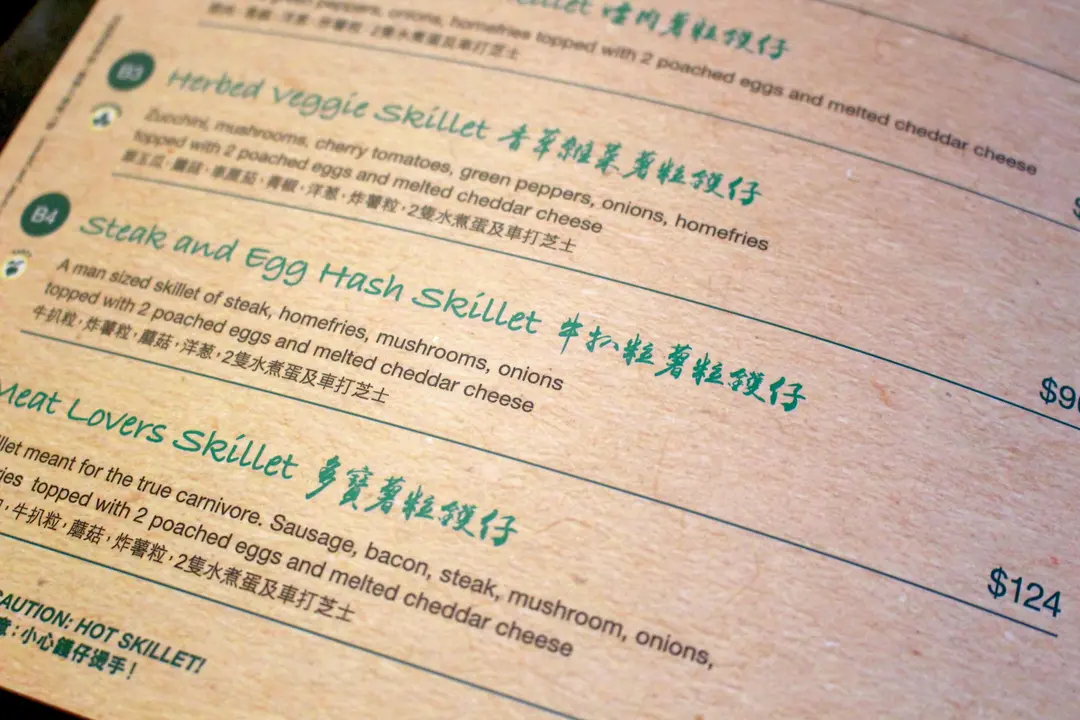 Skillet 噠肉薯粒鑊仔
green peppers, onions, homefries topped with 2 poached eggs and melted cheddar cheese
洋葱，炸薯粒，2隻水煮蛋及車打芝士
B3
Herbed Veggie Skillet 香草雜菜薯粒鑊仔
Zucchini, mushrooms, cherry tomatoes, green peppers, onions, homefries
topped with 2 poached eggs and melted cheddar cheese
翠玉瓜，蘑菇，車厘茄，青椒，洋葱，炸薯粒，2隻水煮蛋及車打芝士
B4
Steak and Egg Hash Skillet 牛扒粒薯粒鑊仔
A man sized skillet of steak, homefries, mushrooms, onions
topped with 2 poached eggs and melted cheddar cheese
牛扒粒，炸薯粒，蘑菇，洋葱，2隻水煮蛋及車打芝士
Meat Lovers Skillet 多寶薯粒鑊仔
meant for the true carnivore. Sausage, bacon, steak, mushroom, onions,
topped with 2 poached eggs and melted cheddar cheese
牛扒粒，蘑菇，炸薯粒，2隻水煮蛋及車打芝士
$124
CAUTION: HOT SKILLET!
：小心鑊仔燙手！